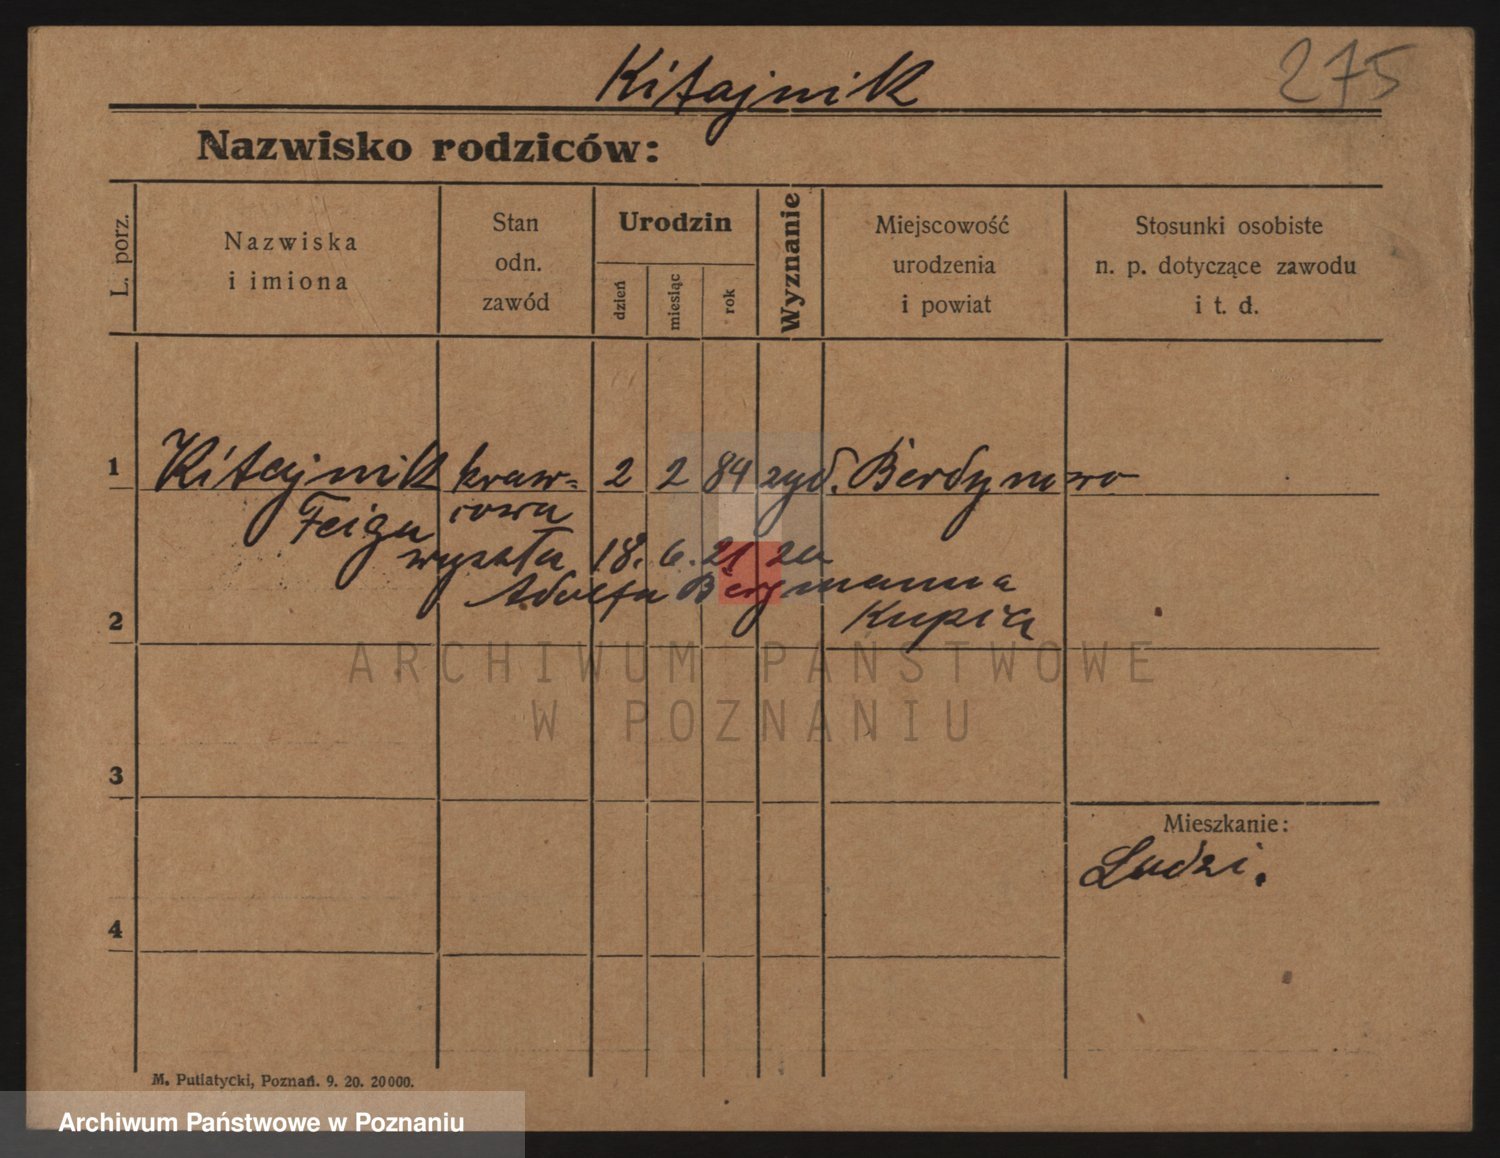 Kitajnik 275
Nazwisko rodziców:
L. porz.
Nazwiska
i imiona
Stan
odn.
zawód
Urodzin
dzień
miesiąc
rok
Wyznanie
Miejscowość
urodzenia
i powiat
Stosunki osobiste
n. p. dotyczące zawodu
i t. d.
1 Kitajnik kraw= 2 2 84 żyd.
Feiga cowa
wyszła 18. 6. 21 za
Adolfa Bergmanna
2
ARCHIWUM PAŃSTWOWE
W POZNANIU
3
Mieszkanie:
4
M. Putiatycki, Poznań. 9. 20. 20000.
Archiwum Państwowe w Poznaniu